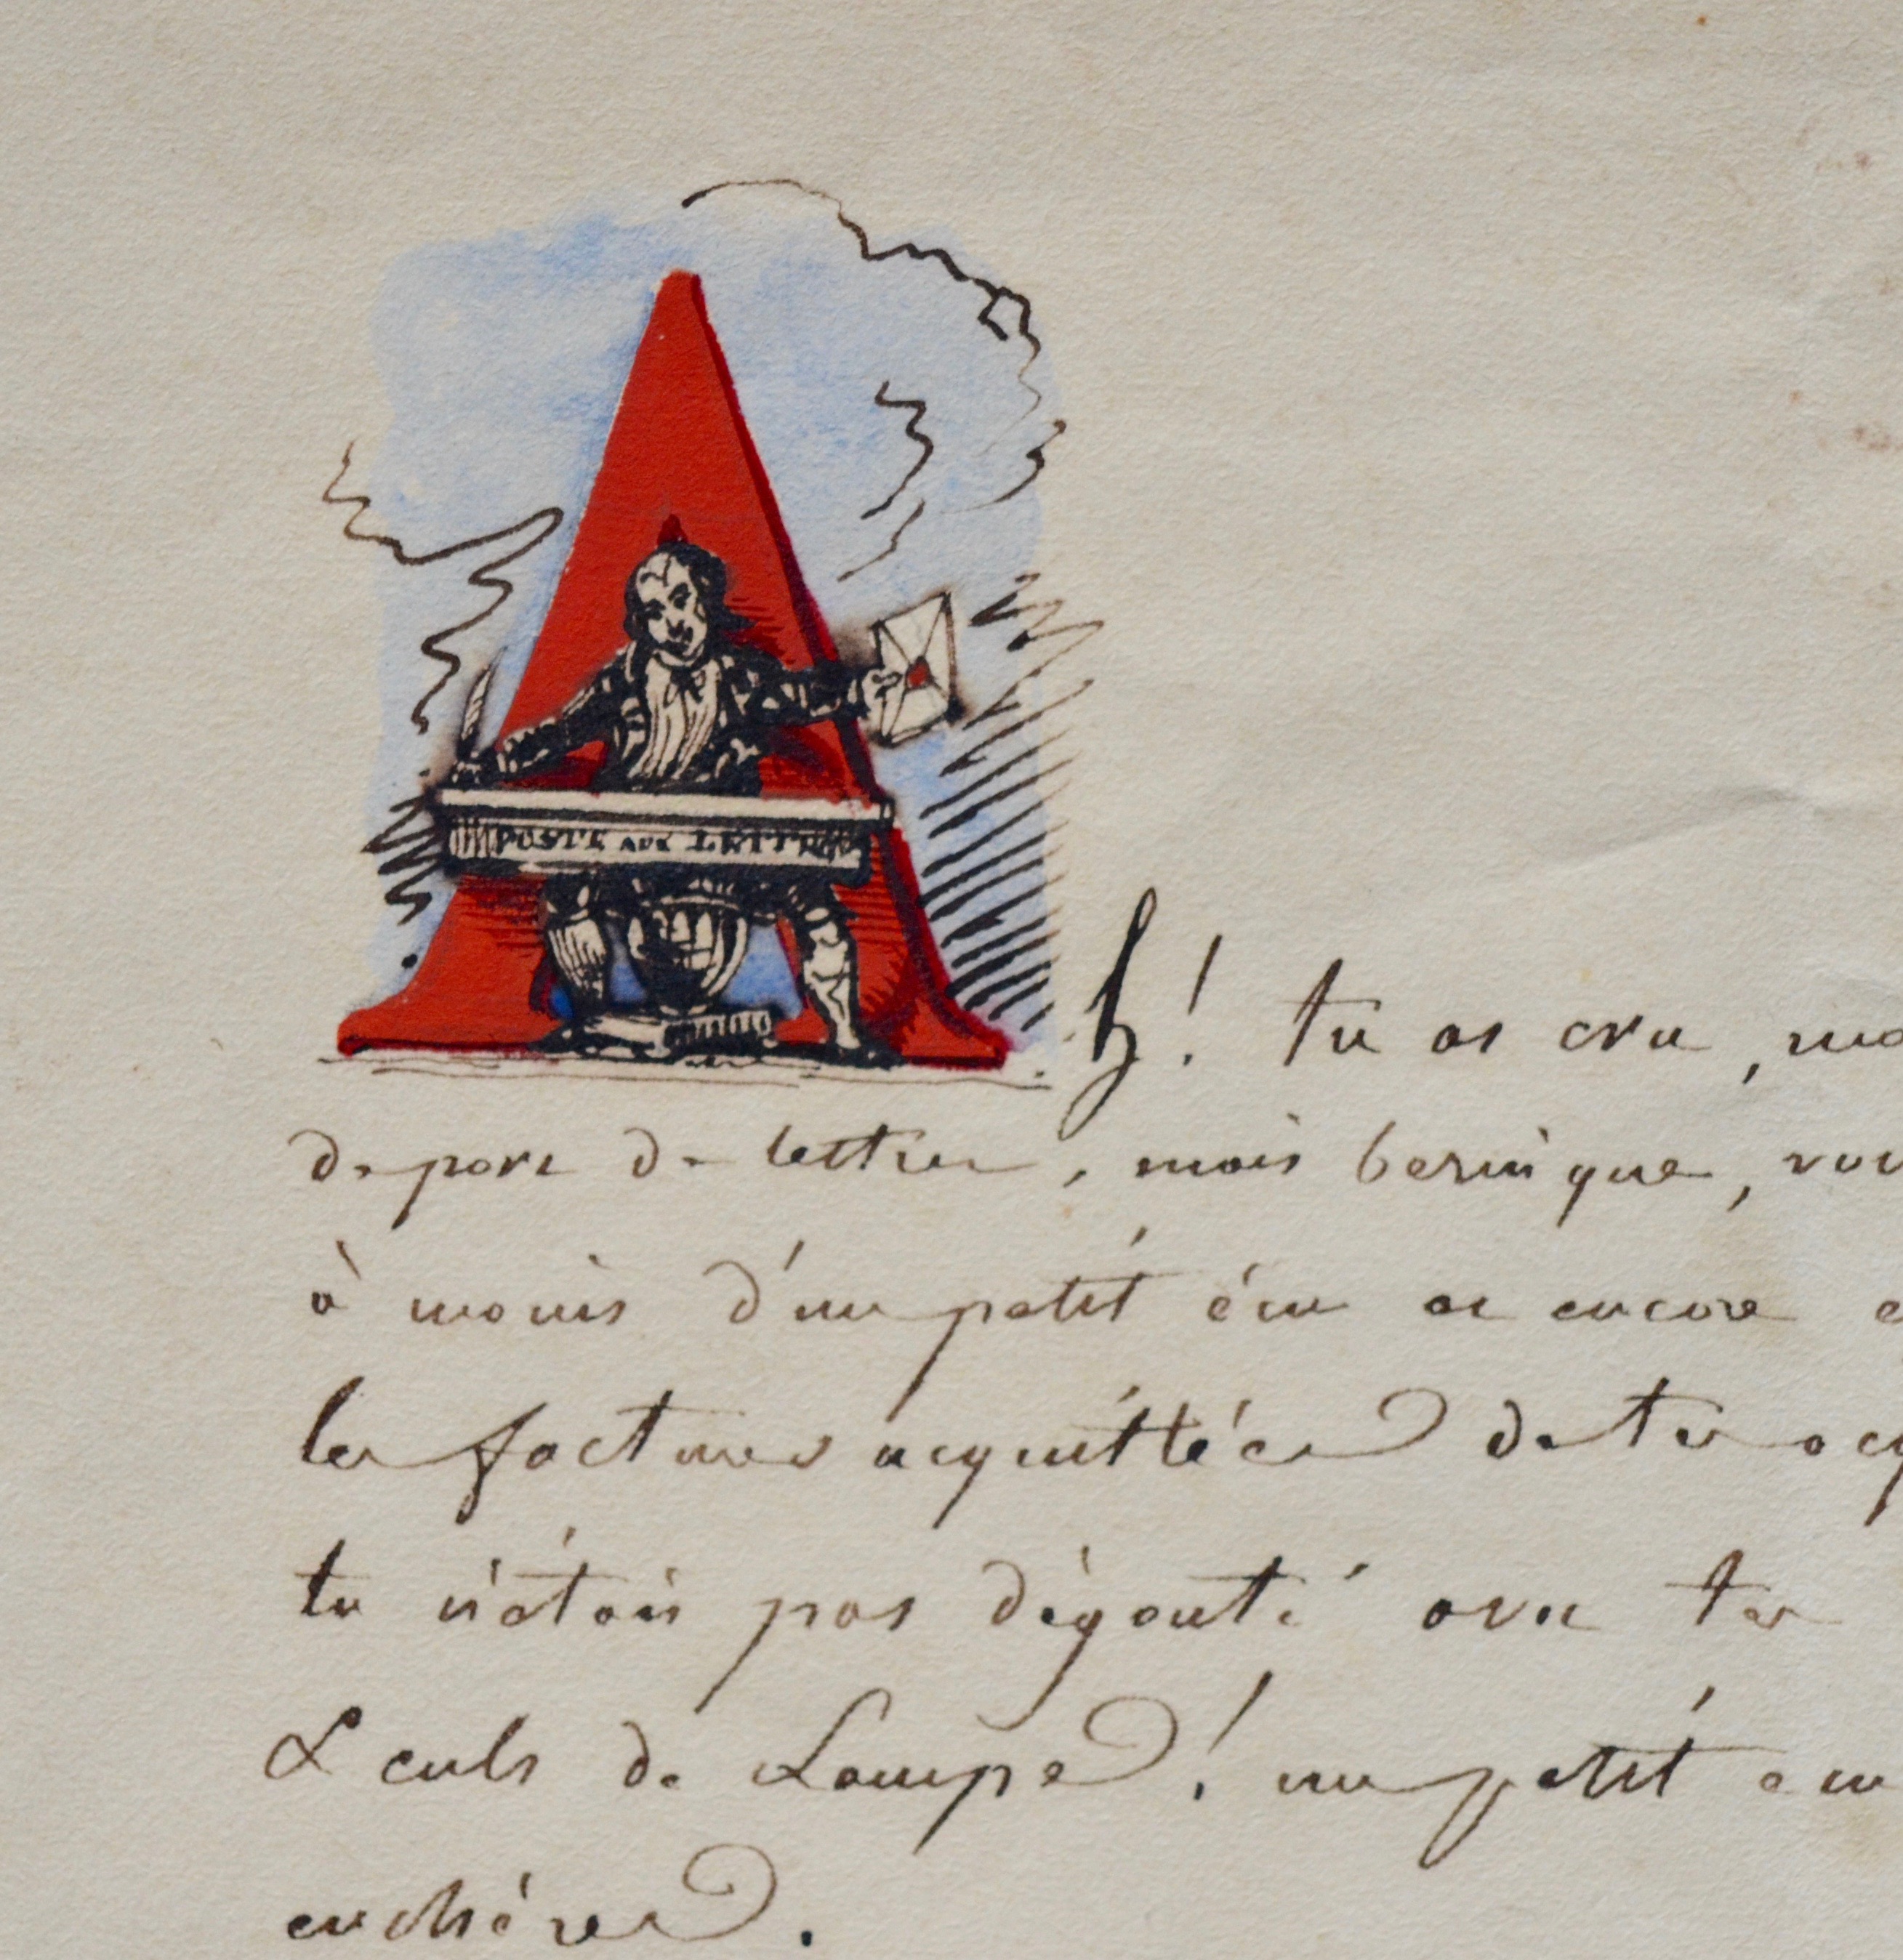 POSTE AUX LETTRES
Ah! tu as cru,
de port de lettre, mais bernique,
à moins d'un petit écu et encore
les factures acquittées de tes
tu n'étais pas dégouté avec tes
& culs de Lampe! un petit écu
enchères.